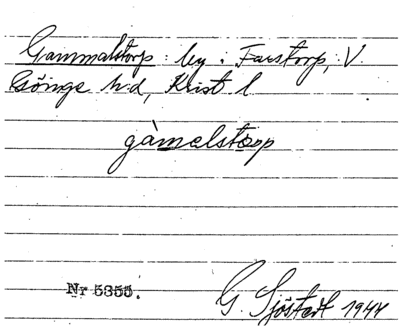 Gammalstorp: by i Farstorp, V.
Göinge hd, Krist l
gàmalstɔrp
Nr 5355.
G. Sjöstedt 1944